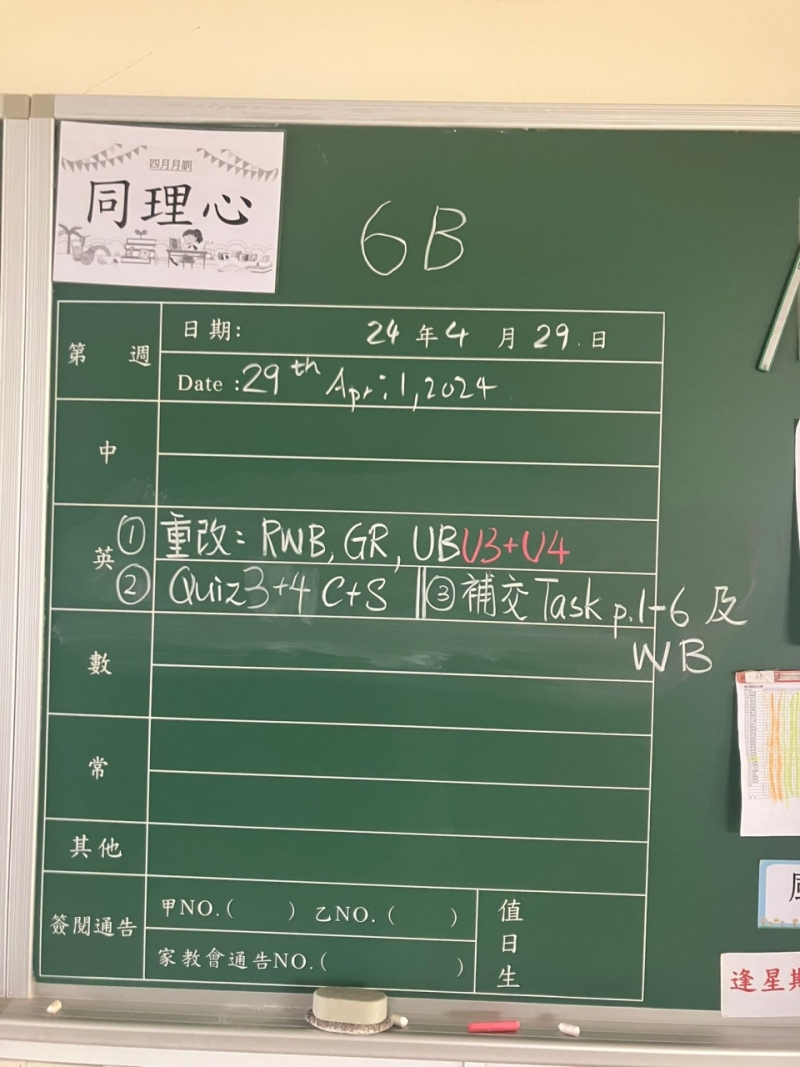 四月月訓
同理心
6B
第 週
日期: 24年4月29.日
Date :29th April, 2024
中
英
① 重改: RWB, GR, UB U3+U4
② Quiz3+4 C+S ③補交 Task p.1-6 及
WB
數
常
其他
簽閱通告
甲NO.( ) 乙NO.( )
家教會通告NO.( )
值日生
逢星期